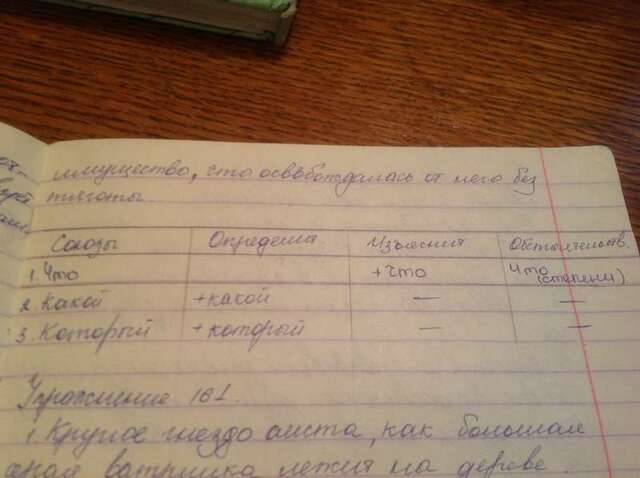 имущество, что освобождалась от него без
тяготы.
Союзы Определит. Изъяснит. Обстоятельств.
1. Что +что Что (степени)
2. Какой +какой — —
3. Который +который — —
Упражнение 161.
1. Круглое гнездо аиста, как большая
ватрушка лежит на дереве.